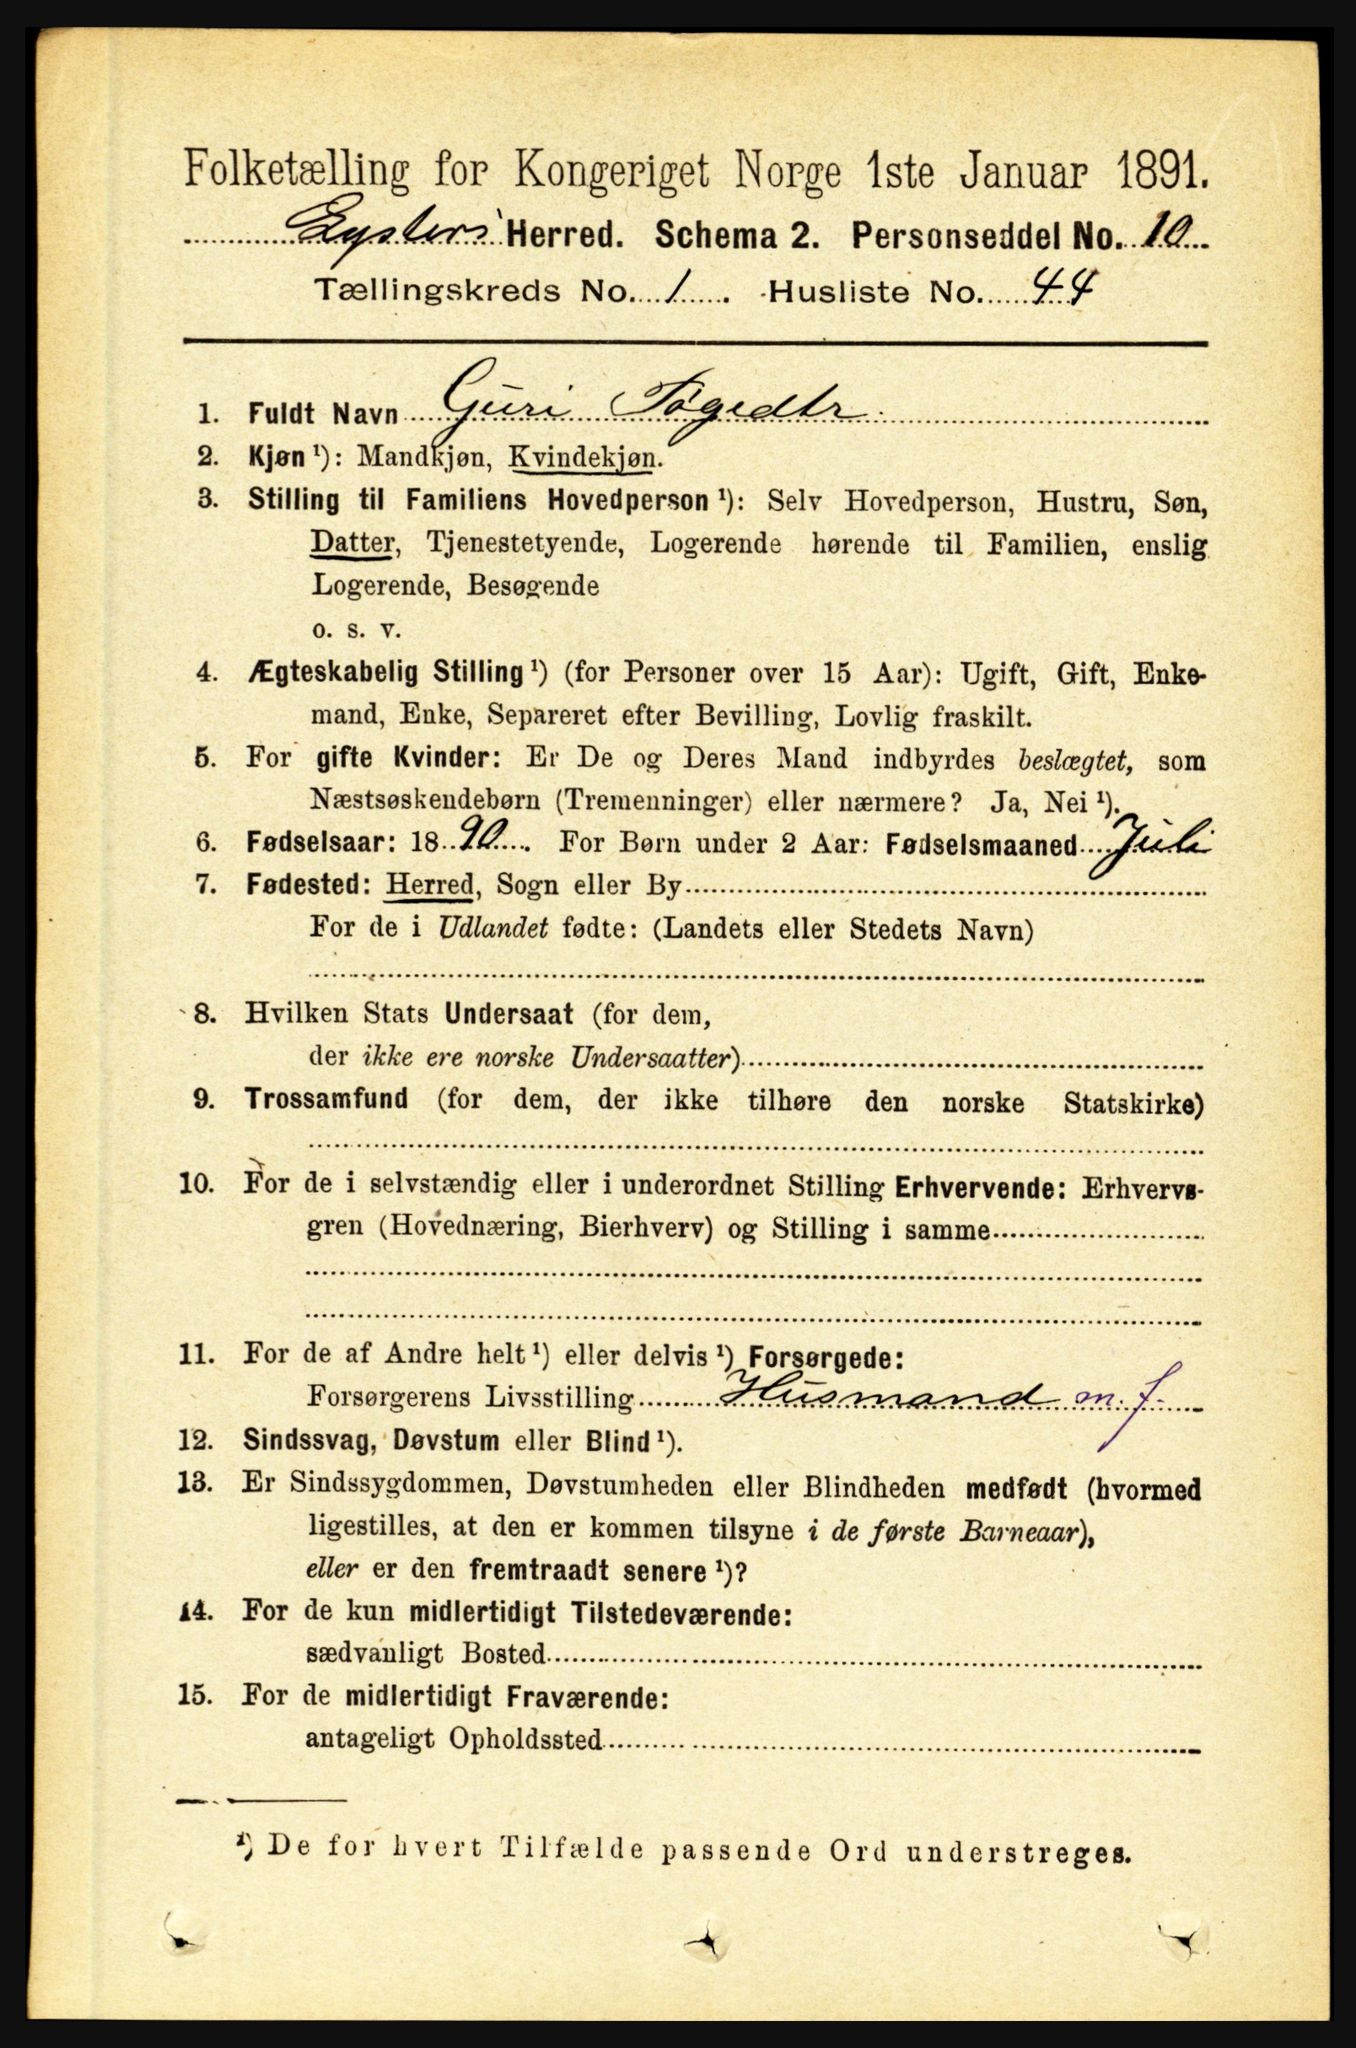 Folketælling for Kongeriget Norge 1ste Januar 1891.
Lysters Herred. Schema 2. Personseddel No. 10
Tællingskreds No. 1. Husliste No. 44
1. Fuldt Navn Guri Tøgedtr
2. Kjøn ¹): Mandkjøn, Kvindekjøn.
3. Stilling til Familiens Hovedperson ¹): Selv Hovedperson, Hustru, Søn,
Datter, Tjenestetyende, Logerende hørende til Familien, enslig
Logerende, Besøgende
o. s. v.
4. Ægteskabelig Stilling ¹) (for Personer over 15 Aar): Ugift, Gift, Enke-
mand, Enke, Separeret efter Bevilling, Lovlig fraskilt.
5. For gifte Kvinder: Er De og Deres Mand indbyrdes beslægtet, som
Næstsøskendebørn (Tremenninger) eller nærmere? Ja, Nei ¹).
6. Fødselsaar: 1890. For Børn under 2 Aar: Fødselsmaaned Juli
7. Fødested: Herred, Sogn eller By
For de i Udlandet fødte: (Landets eller Stedets Navn)
8. Hvilken Stats Undersaat (for dem,
der ikke ere norske Undersaatter)
9. Trossamfund (for dem, der ikke tilhøre den norske Statskirke)
10. For de i selvstændig eller i underordnet Stilling Erhvervende: Erhvervs-
gren (Hovednæring, Bierhverv) og Stilling i samme
11. For de af Andre helt ¹) eller delvis ¹) Forsørgede:
Forsørgerens Livsstilling Husmand m. f.
12. Sindssvag, Døvstum eller Blind ¹).
13. Er Sindssygdommen, Døvstumheden eller Blindheden medfødt (hvormed
ligestilles, at den er kommen tilsyne i de første Barneaar),
eller er den fremtraadt senere ¹)?
14. For de kun midlertidigt Tilstedeværende:
sædvanligt Bosted
15. For de midlertidigt Fraværende:
antageligt Opholdssted
¹) De for hvert Tilfælde passende Ord understreges.